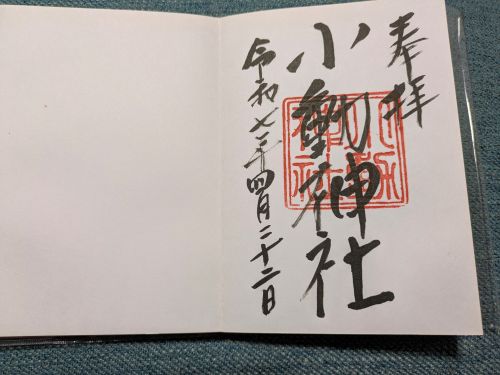 奉拝
小動神社
令和七年四月二十二日